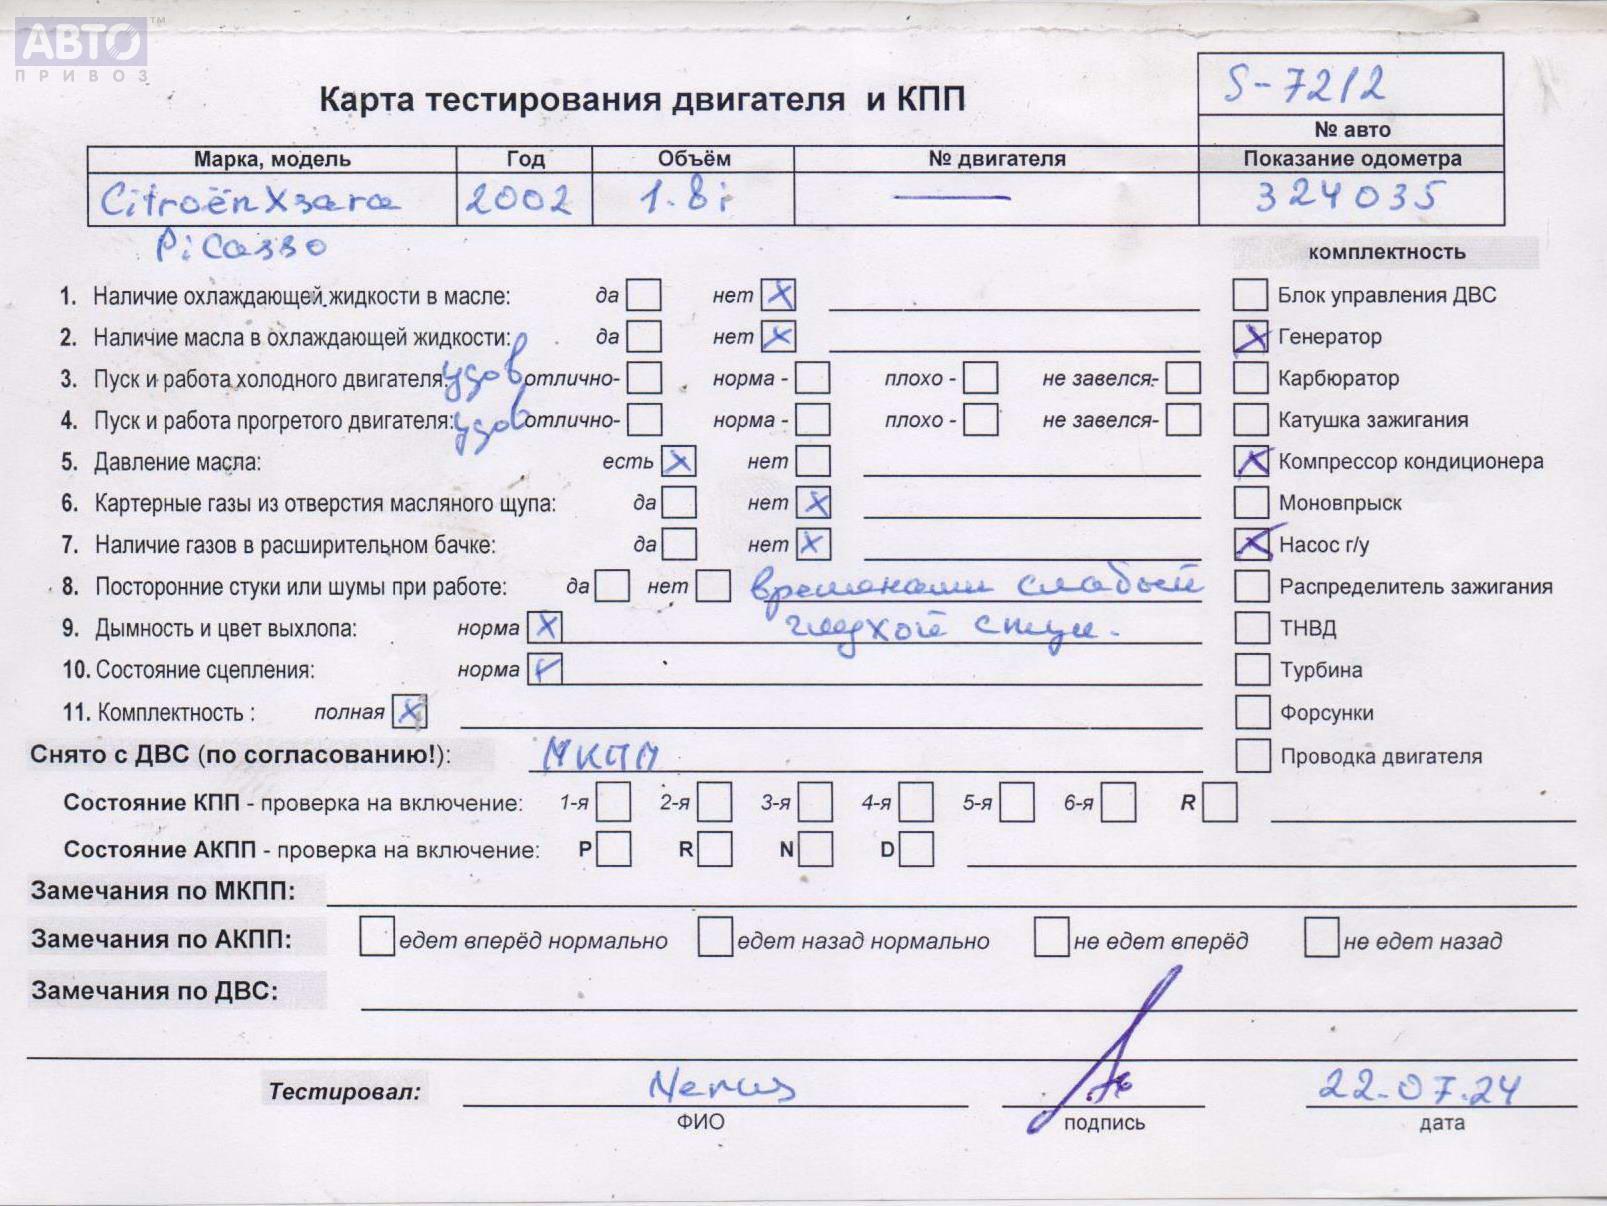 АВТО™
ПРИВОЗ
Карта тестирования двигателя и КПП
S-7212
№ авто
Марка, модель Год Объём № двигателя Показание одометра
Citroën Xsara 2002 1.8i — 324035
Picasso
комплектность
1. Наличие охлаждающей жидкости в масле: да нет X Блок управления ДВС
2. Наличие масла в охлаждающей жидкости: да нет X X Генератор
3. Пуск и работа холодного двигателя: удов отлично- норма - плохо - не завелся- Карбюратор
4. Пуск и работа прогретого двигателя: удов отлично- норма - плохо - не завелся- Катушка зажигания
5. Давление масла: есть X нет X Компрессор кондиционера
6. Картерные газы из отверстия масляного щупа: да нет X Моновпрыск
7. Наличие газов в расширительном бачке: да нет X X Насос г/у
8. Посторонние стуки или шумы при работе: да нет временами слабый Распределитель зажигания
9. Дымность и цвет выхлопа: норма X глухой стук. ТНВД
10. Состояние сцепления: норма Турбина
11. Комплектность : полная X Форсунки
Снято с ДВС (по согласованию!): МКПП Проводка двигателя
Состояние КПП - проверка на включение: 1-я 2-я 3-я 4-я 5-я 6-я R
Состояние АКПП - проверка на включение: P R N D
Замечания по МКПП:
Замечания по АКПП: едет вперёд нормально едет назад нормально не едет вперёд не едет назад
Замечания по ДВС:
Тестировал: 22-07.24
ФИО подпись дата